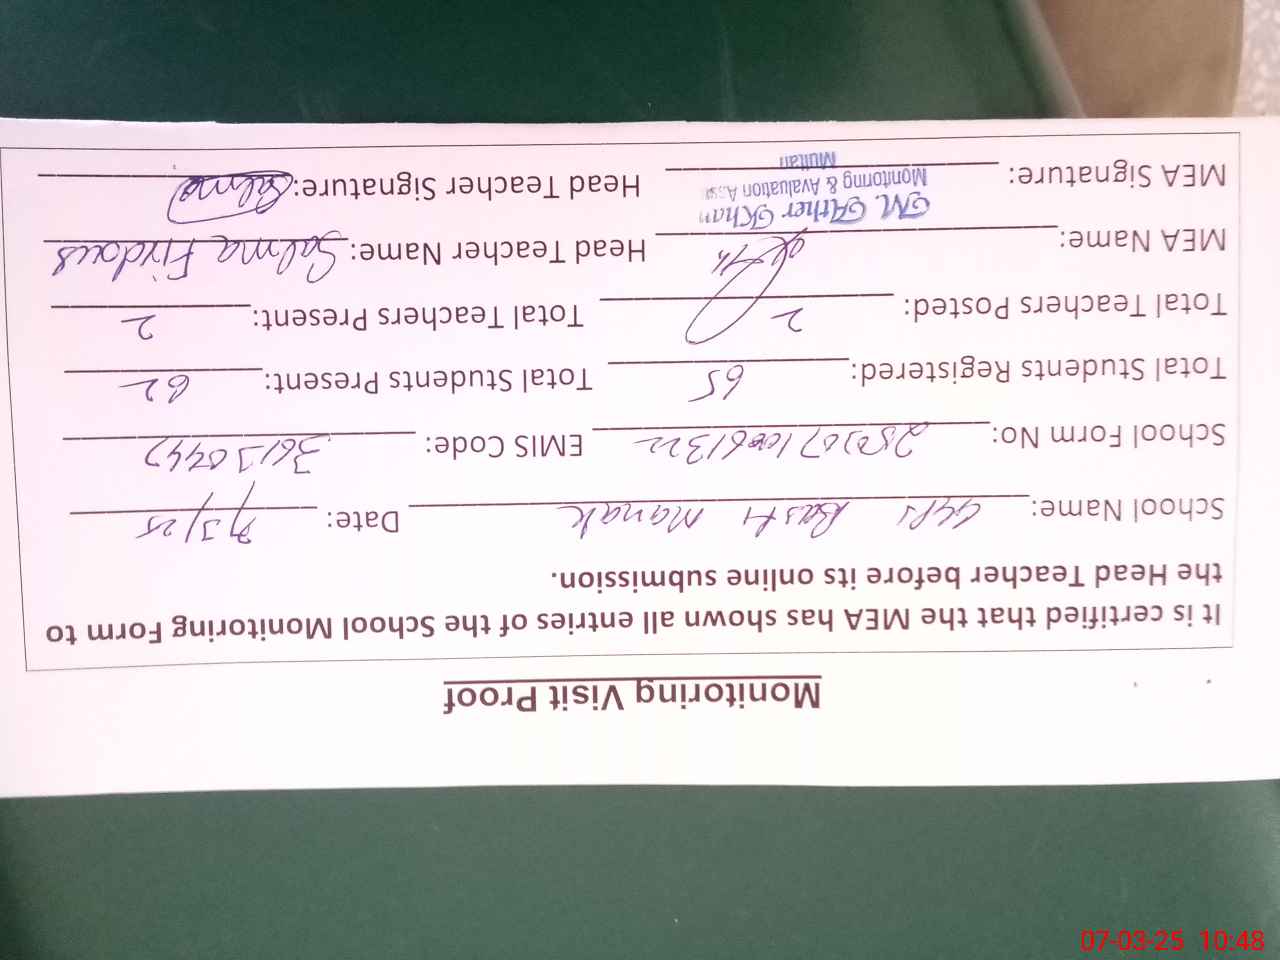 Monitoring Visit Proof
It is certified that the MEA has shown all entries of the School Monitoring Form to
the Head Teacher before its online submission.
School Name: GGPS Basti Manak Date: 7/3/25
School Form No: EMIS Code: 36130442
Total Students Registered: 65 Total Students Present: 62
Total Teachers Posted: 2 Total Teachers Present: 2
MEA Name: Head Teacher Name: Salma Firdous
M. Ather Khan
MEA Signature: Monitoring & Evaluation Head Teacher Signature: Salma
Multan
07-03-25 10:48